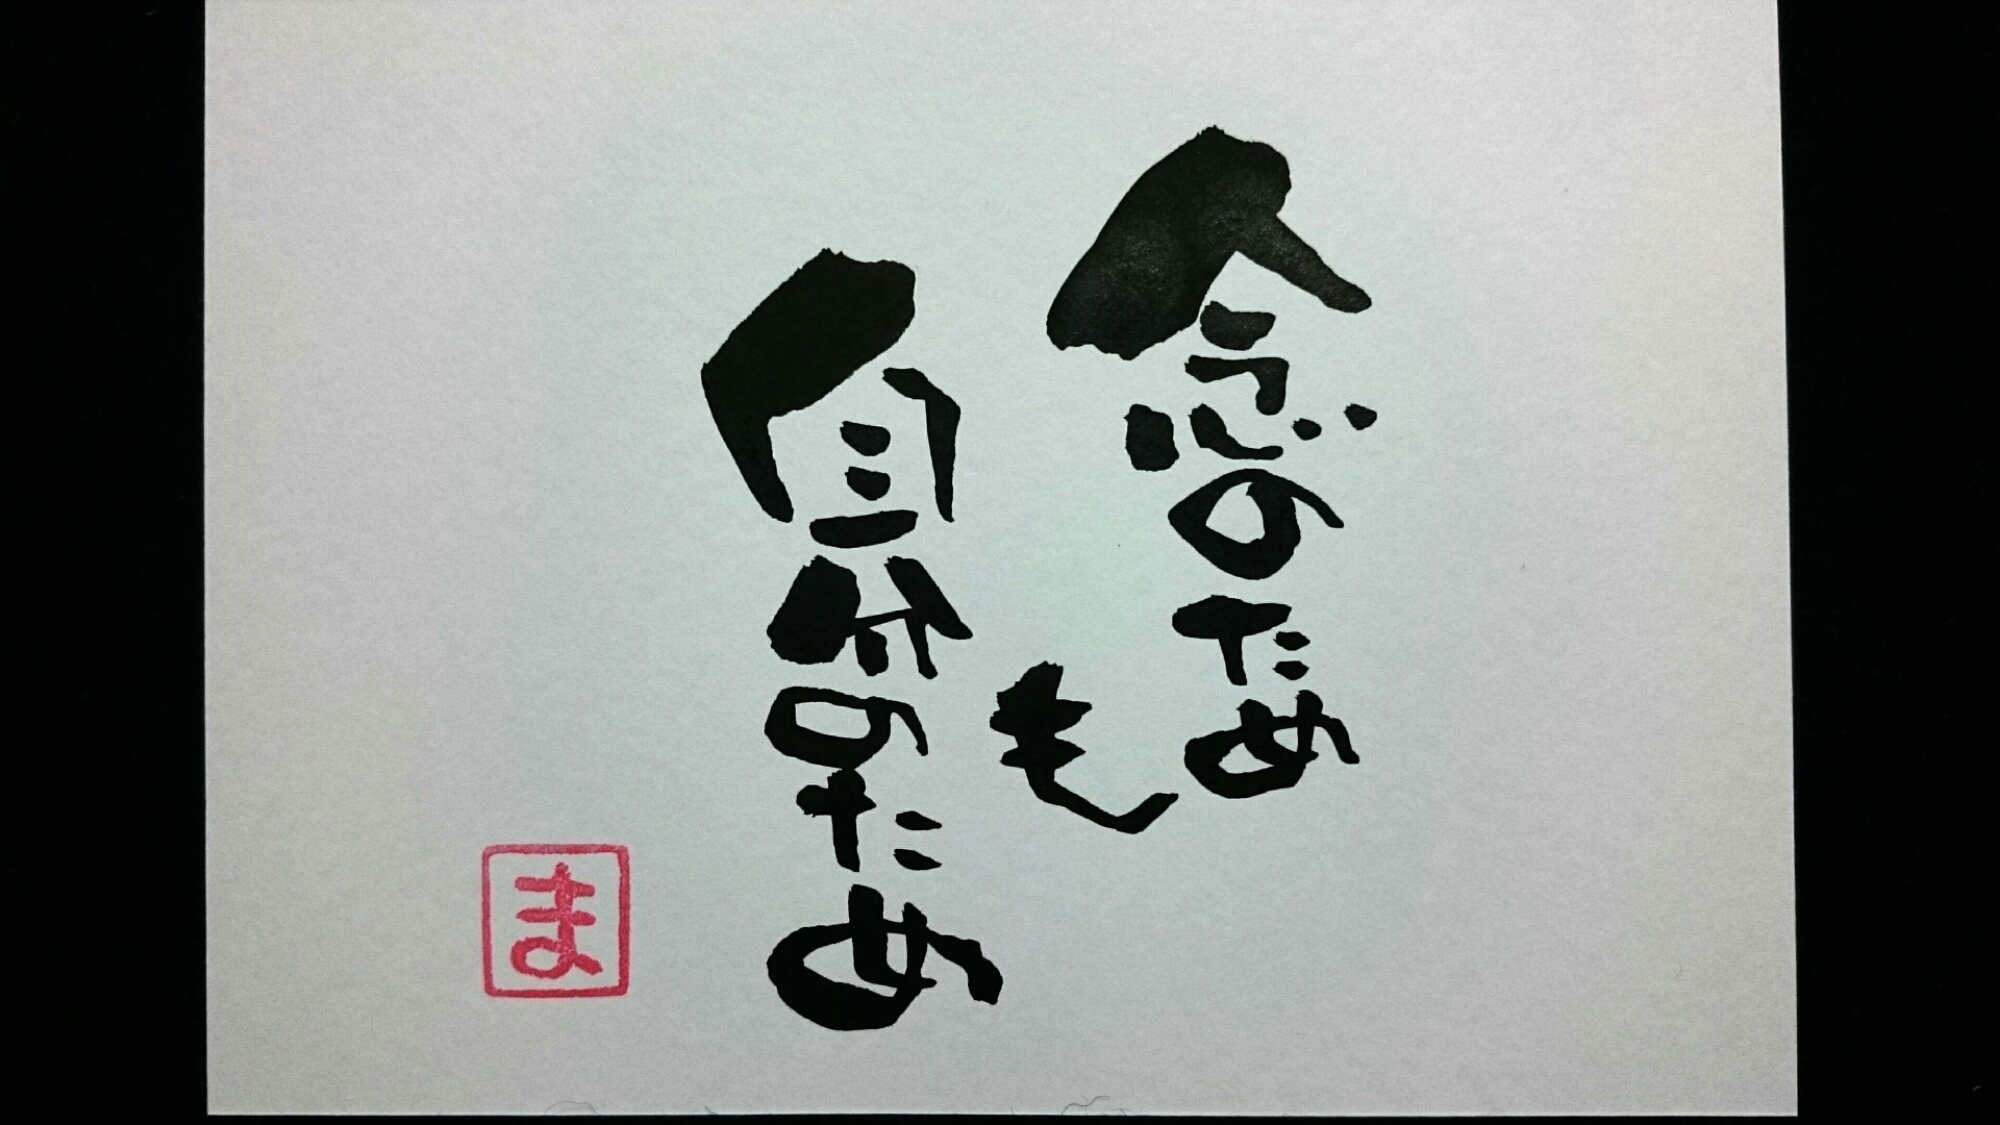 念のため
も
自分のため
ま